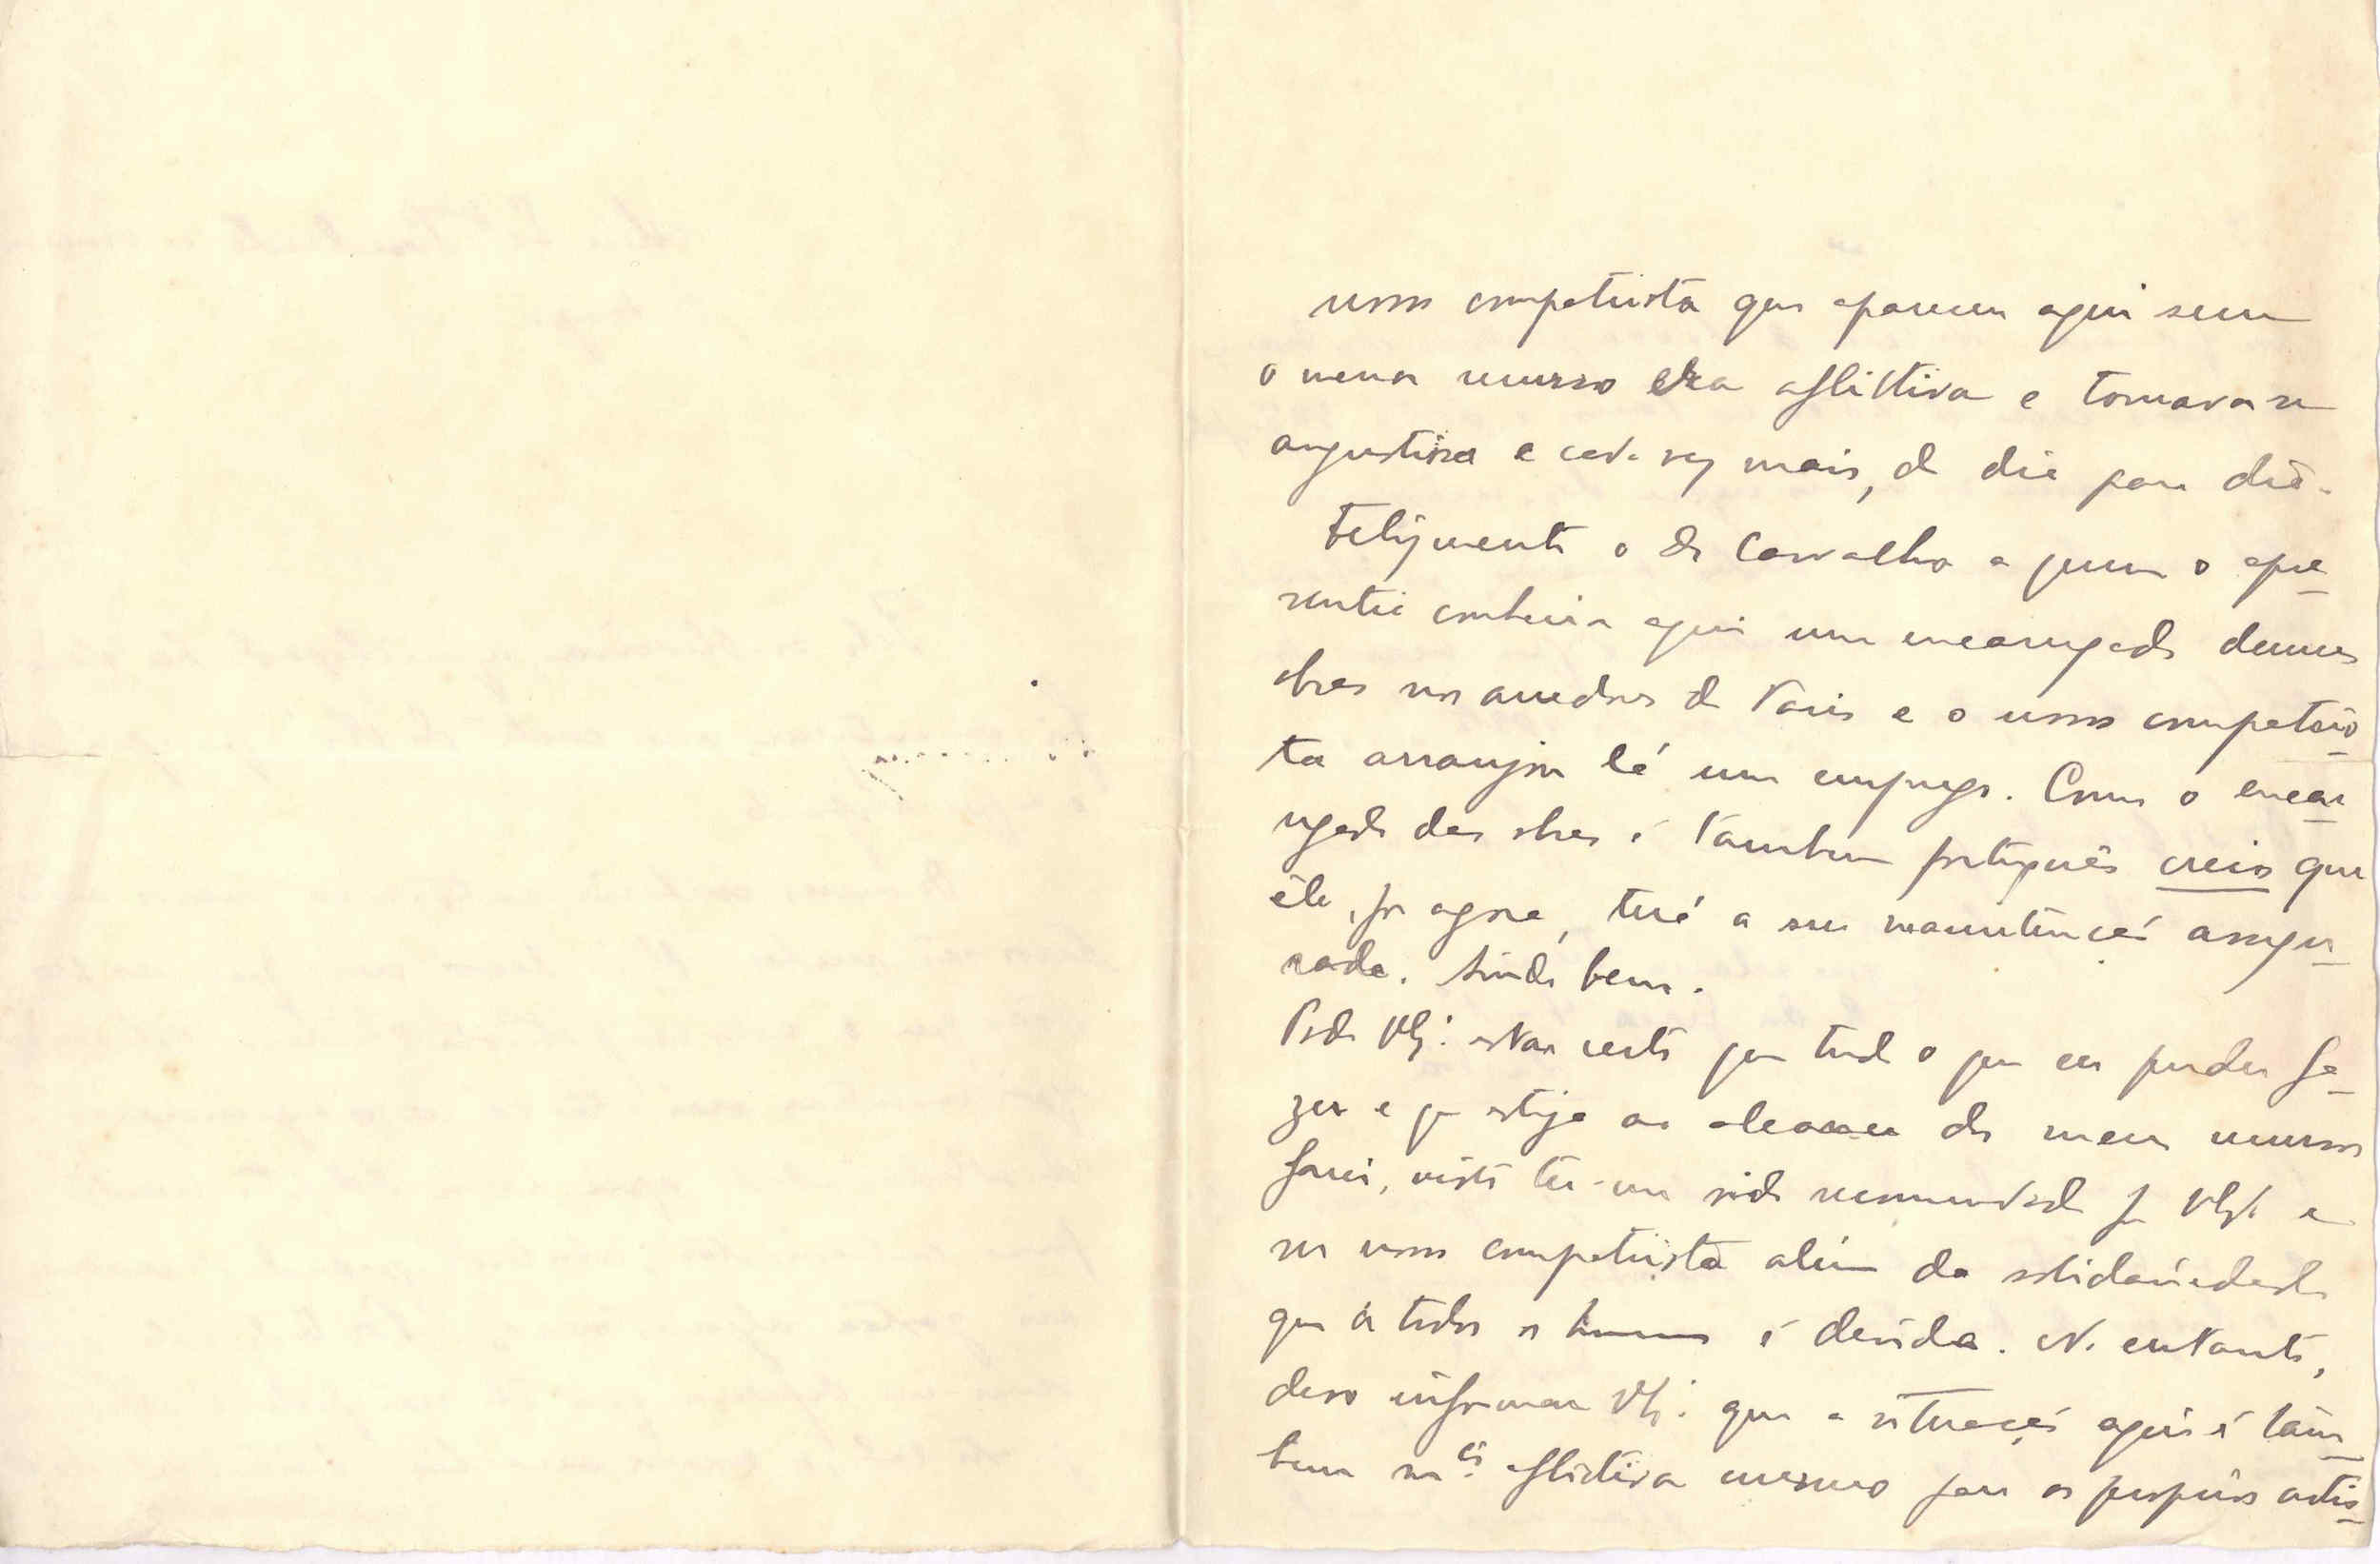 nosso compatriota que apareceu aqui sem
o menor recurso era aflittiva e tornava-se
angustiosa e cada vez mais, de dia para dia.
Felizmente o Dr Carvalho a quem o apre-
sentei conhecia aqui um encarregado dumas
obras nos arredores de Paris e o nosso compatrio-
ta arranjou lá um emprego. Como o encar-
regado das obras é tambem português creio que
êle, por agora, terá a sua manutenção assegu-
rada. Ainda bem.
Pode V. Ex.ª estar certo que tudo o que eu puder fa-
zer e que esteja ao alcance de meus recursos
farei, visto ter-me sido recomendado por V. Ex.ª e
ser nosso compatriota além da solidariedade
que a todos os homens é devida. No entanto,
devo informar V. Ex.ª que a situação aqui é tam-
bem m.to aflictiva mesmo para os proprios artis-